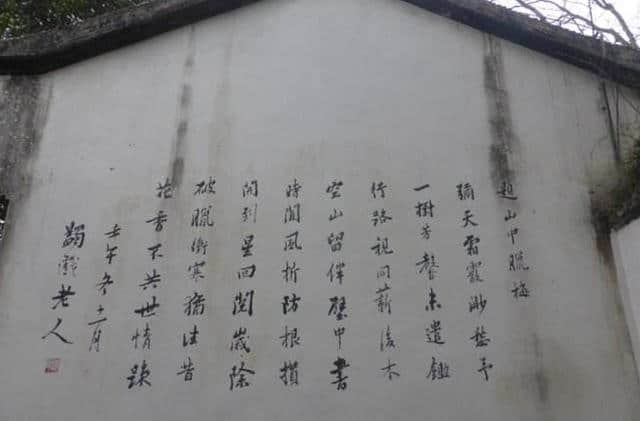 山中臘梅
彌天霜霰渺愁予
一樹芳馨未遣鋤
行路視同薪後木
空山留伴壁中書
時聞風折防根損
開到星回閱歲除
破臘衝寒猶往昔
花香不共世情踈
壬午冬十一月
蠲戲老人